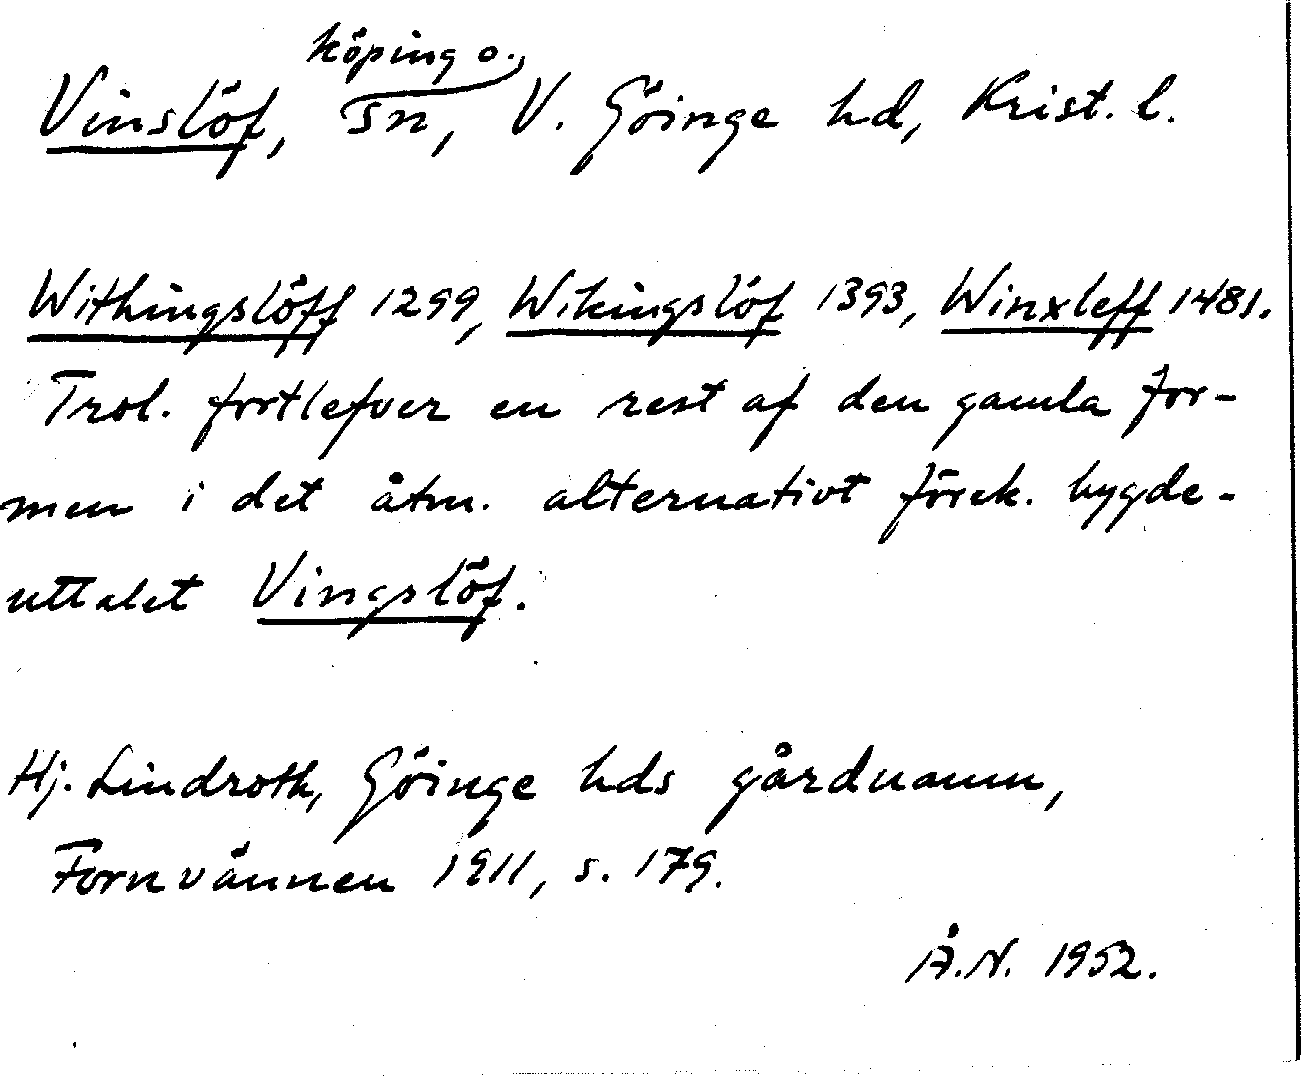 Vinslöf, köping o. sn, V. Göinge hd, Krist. l.
Withingslöff 1299, Wikingslöf 1393, Winxleff 1481.
Trol. fortlefver en rest af den gamla for-
men i det åtm. alternativt förek. bygde-
uttalet Vingslöf.
Hj. Lindroth, Göinge hds gårdnamn,
Fornvännen 1911, s. 179.
Å.N. 1952.